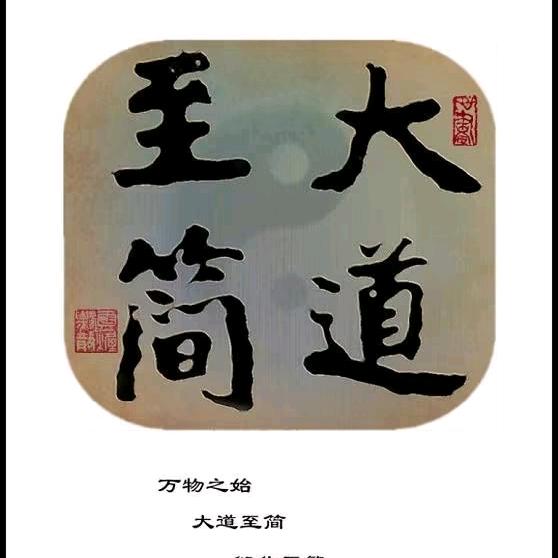 大道
至简
万物之始
大道至简